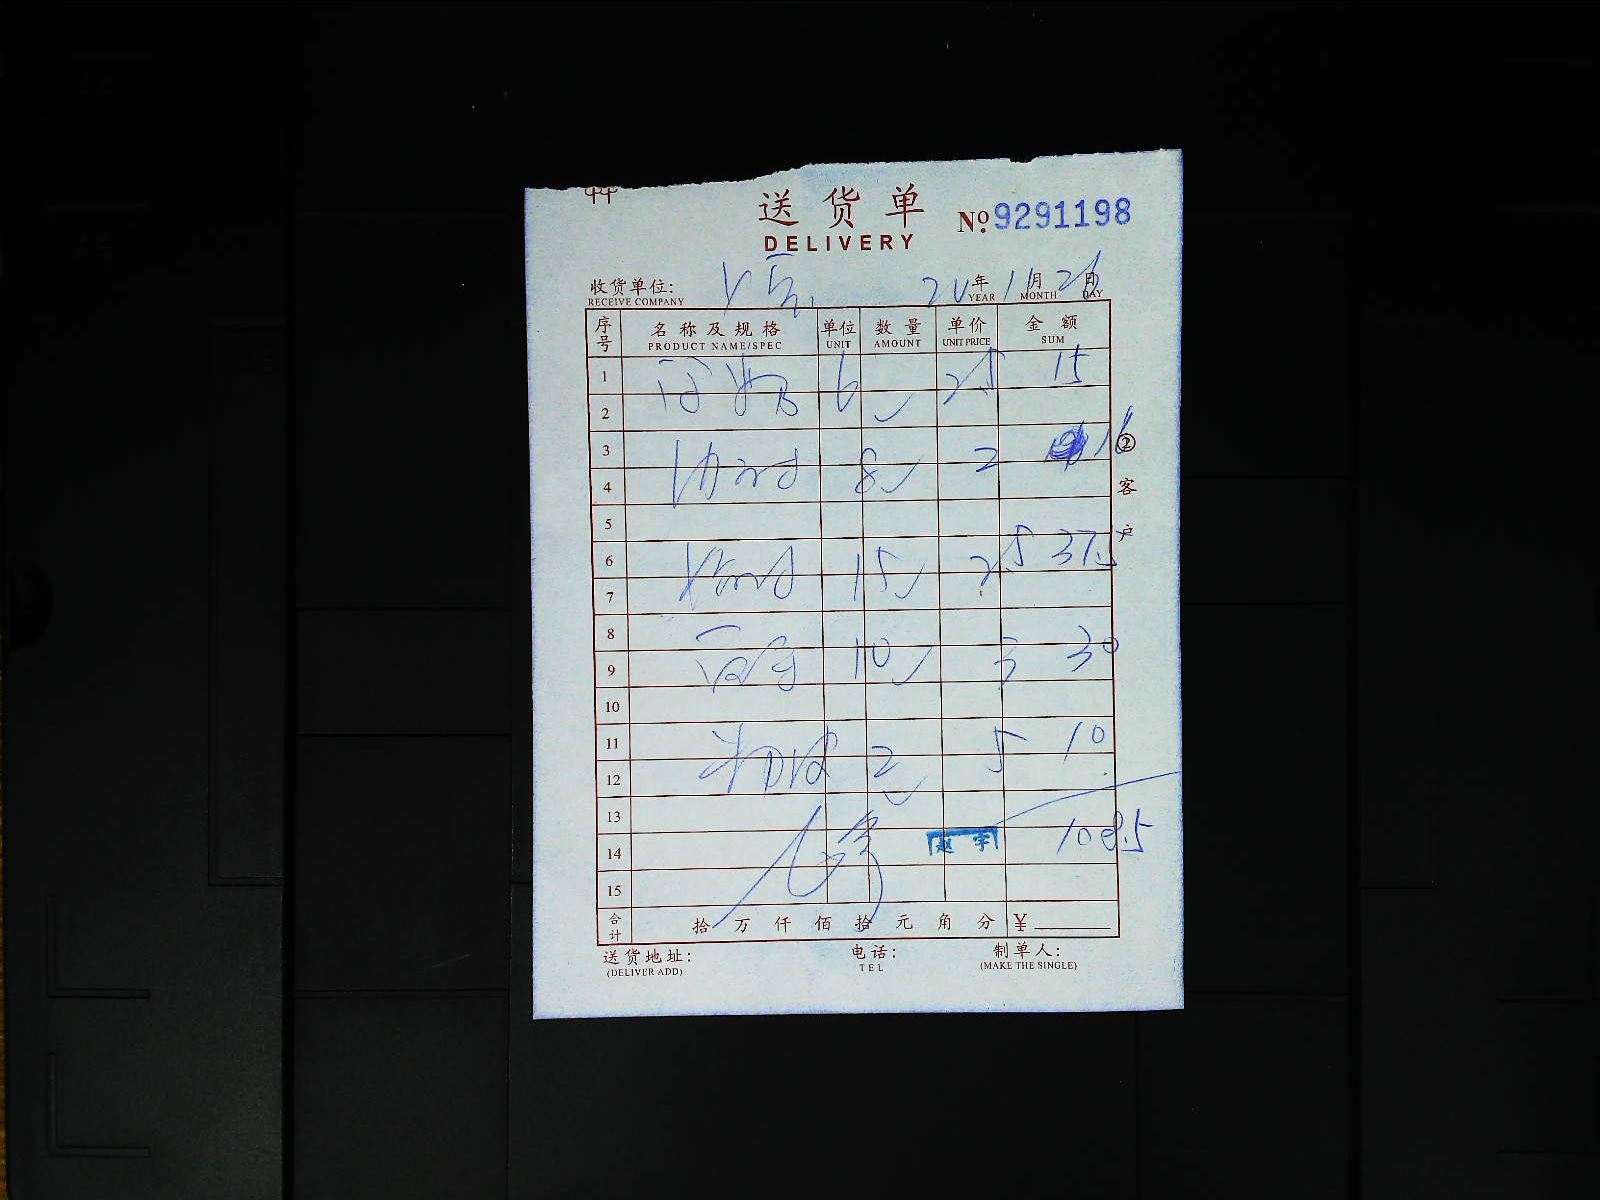 送货单
DELIVERY
No. 9291198
收货单位: 20年11月26日
RECEIVE COMPANY YEAR MONTH DAY
序号 名称及规格 单位 数量 单价 金额
PRODUCT NAME/SPEC UNIT AMOUNT UNIT PRICE SUM
1 6 2.5 15
2
3 8 2 16
4
5
6 15 2.5 37.5
7
8
9 10 3 30
10
11 2 5 10
12
13
14 108.5
15
合计 拾 万 仟 佰 拾 元 角 分 ¥
送货地址: 电话: 制单人:
(DELIVER ADD) TEL (MAKE THE SINGLE)
②客户